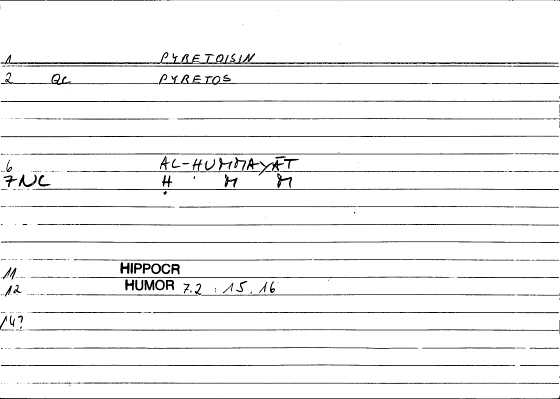 1 PYRETOISIN
2 QC PYRETOS
6 AL-ḤUMMAYĀT
7 NC Ḥ M M
11 HIPPOCR
12 HUMOR 7.2 : 15.16
14?